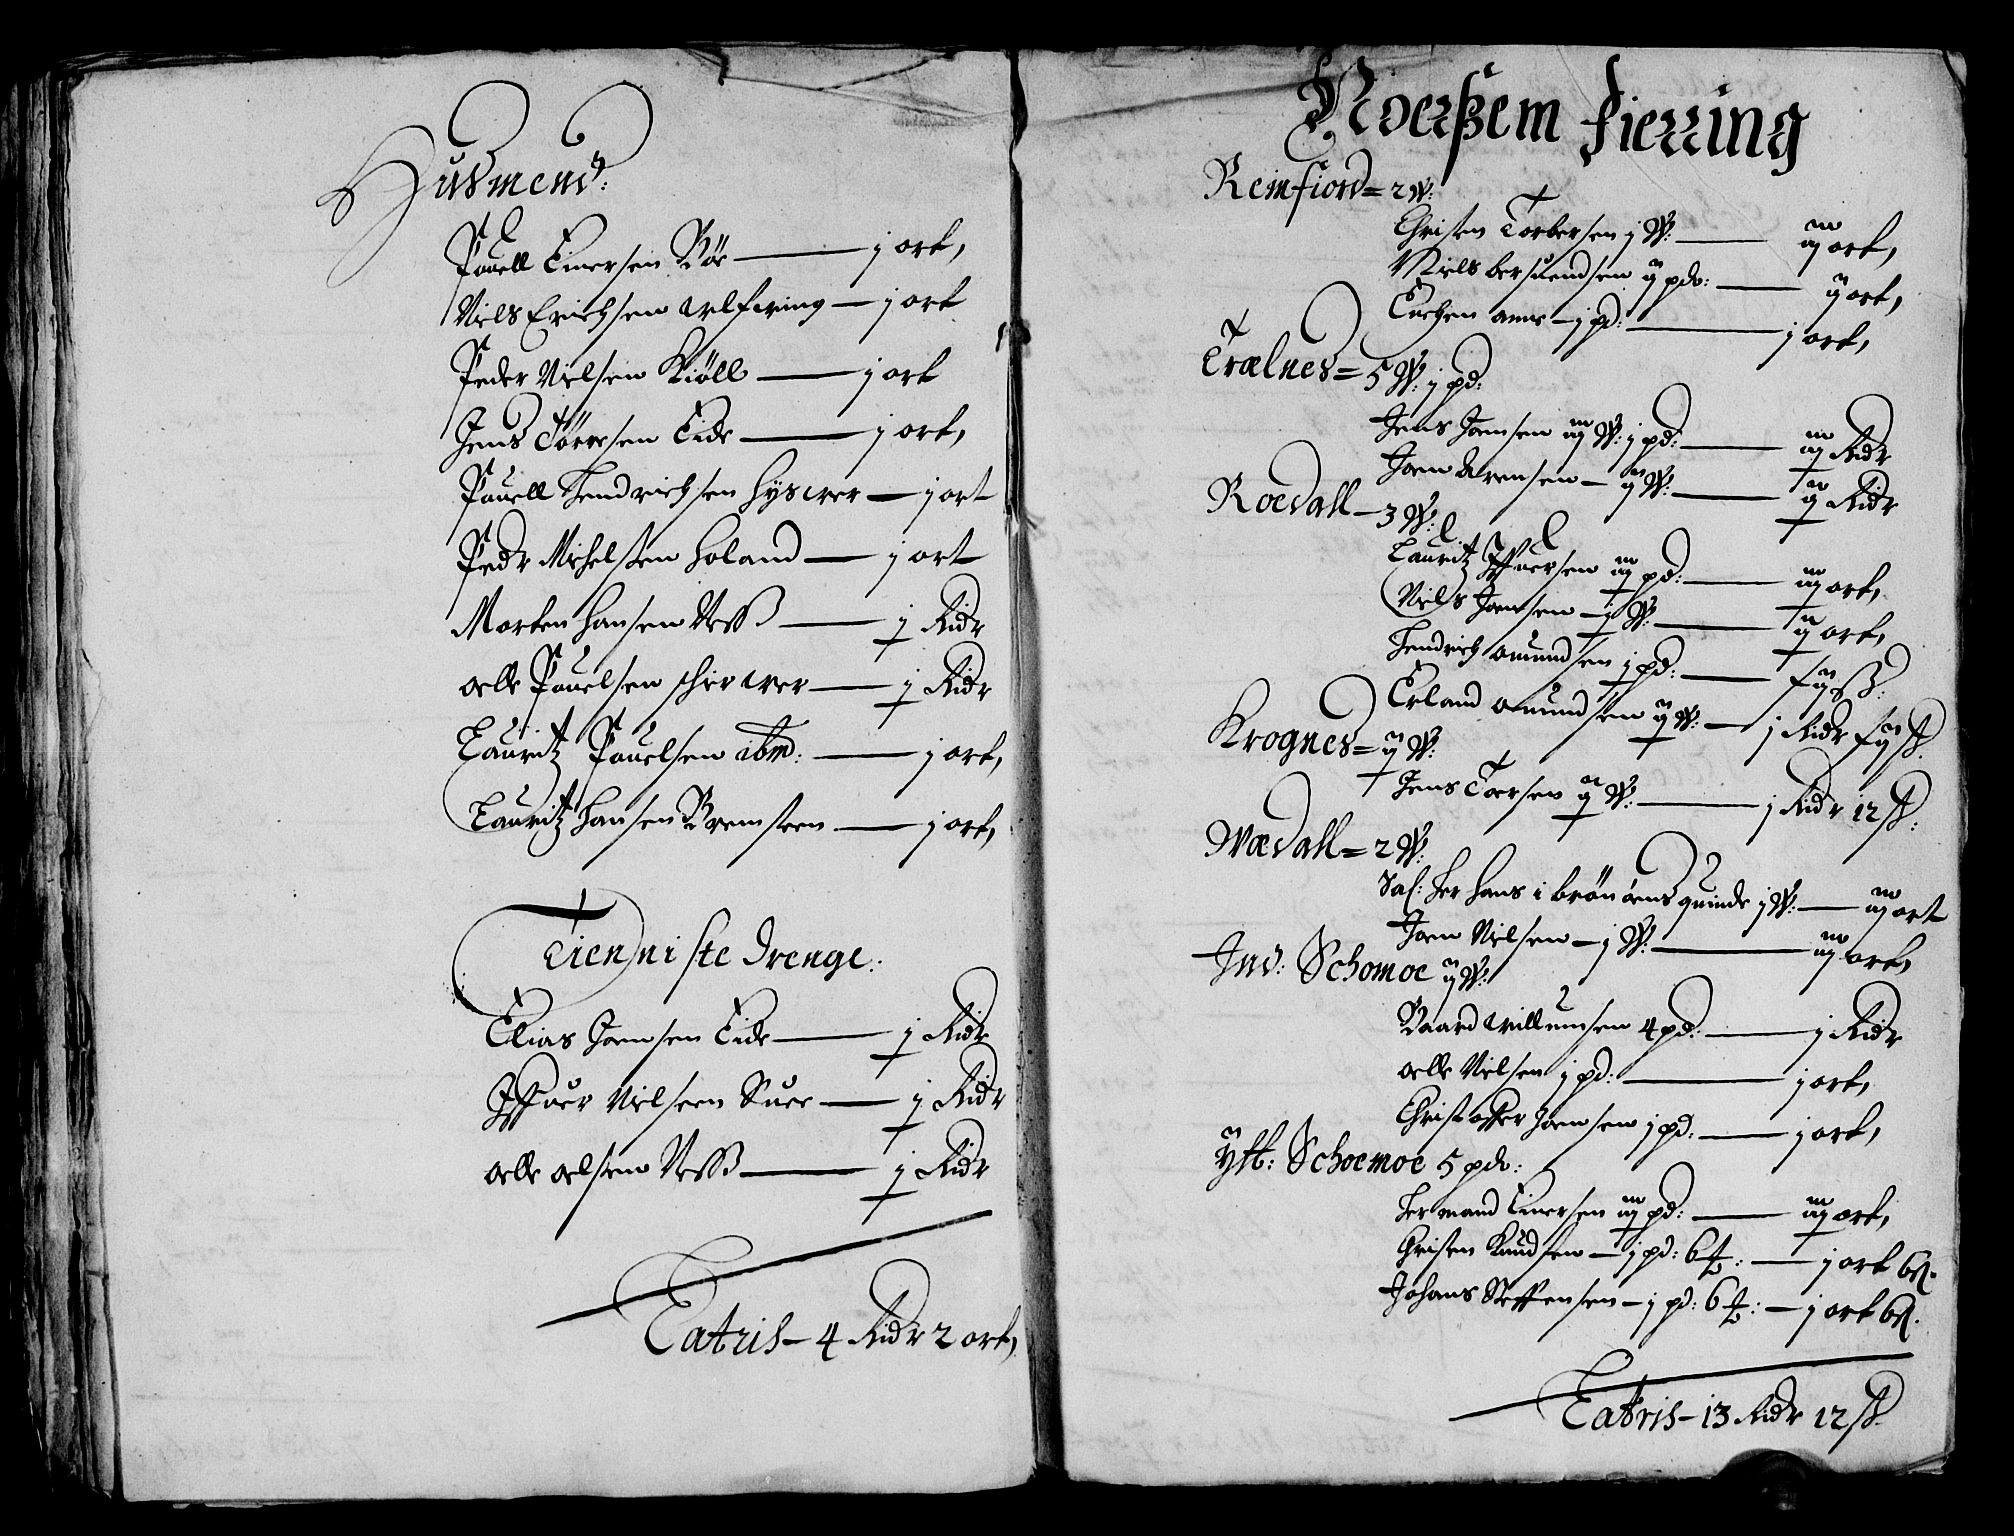 Husmend:
Pouell Einersen Böe — j ort,
Niels Erichsen Ulfering — j ort
Peder Nielsen Kiöll — j ort
Jens Törresen Eide — j ort,
Pouell Hendrichsen Hysvær — j ort
Pedr Michelsen Holand — j ort
Morten Hansen Ness — j Ridr
Olle Pouelsen Schervær — j Ridr
Lauritz Pouelsen ibm: — j ort,
Lauritz Hansen Bremsteen — j ort,
Tienniste drenge:
Elias Joensen Eide — j Ridr
Iffuer Nielsen Suee — j Ridr
Olle Olsen Ness — j Ridr
Latris — 4 Ridr 2 ort,
Noerssem fierring
Remfiord = 2 W:
Christen Torbersen j W: — iij ort,
Niels Bersuendsen ij pdr: — ij ort,
Enchen Anne — j pd: — j ort,
Trælnes = 5 W: j pd:
Jens Joensen iij W: j pd: — iij Ridr
Joen Arensen — ij W: — ij Ridr
Roedall — 3 W:
Lauritz Iffuersen iij pd: — iij ort,
Niels Joensen — j W: — ij ort,
Hendrich Omundsen j pd: — ß:
Erland Omundsen ij W: — j Ridr ß:
Krognes = ij W:
Jens Toersen ij W: — j Ridr 12 ß:
Wædall = 2 W:
Sal: Her Hans i Brönöens quinde j W: — iij ort
Joen Nielsen — j W: — iij ort,
Ind: Schomoe ij W:
Baard Willumsen 4 pd: — j Ridr
Olle Nielsen j pd: — j ort,
Christoffer Joensen j pd: — j ort,
Ytt: Schoemoe 5 pdr:
Hermand Einersen iij pd: — iij ort,
Christen Knudsen — j pd: 6 — j ort 6 ß.
Johans Steffensen — j pd: 6 — j ort 6 ß.
Latris — 13 Ridr 12 ß